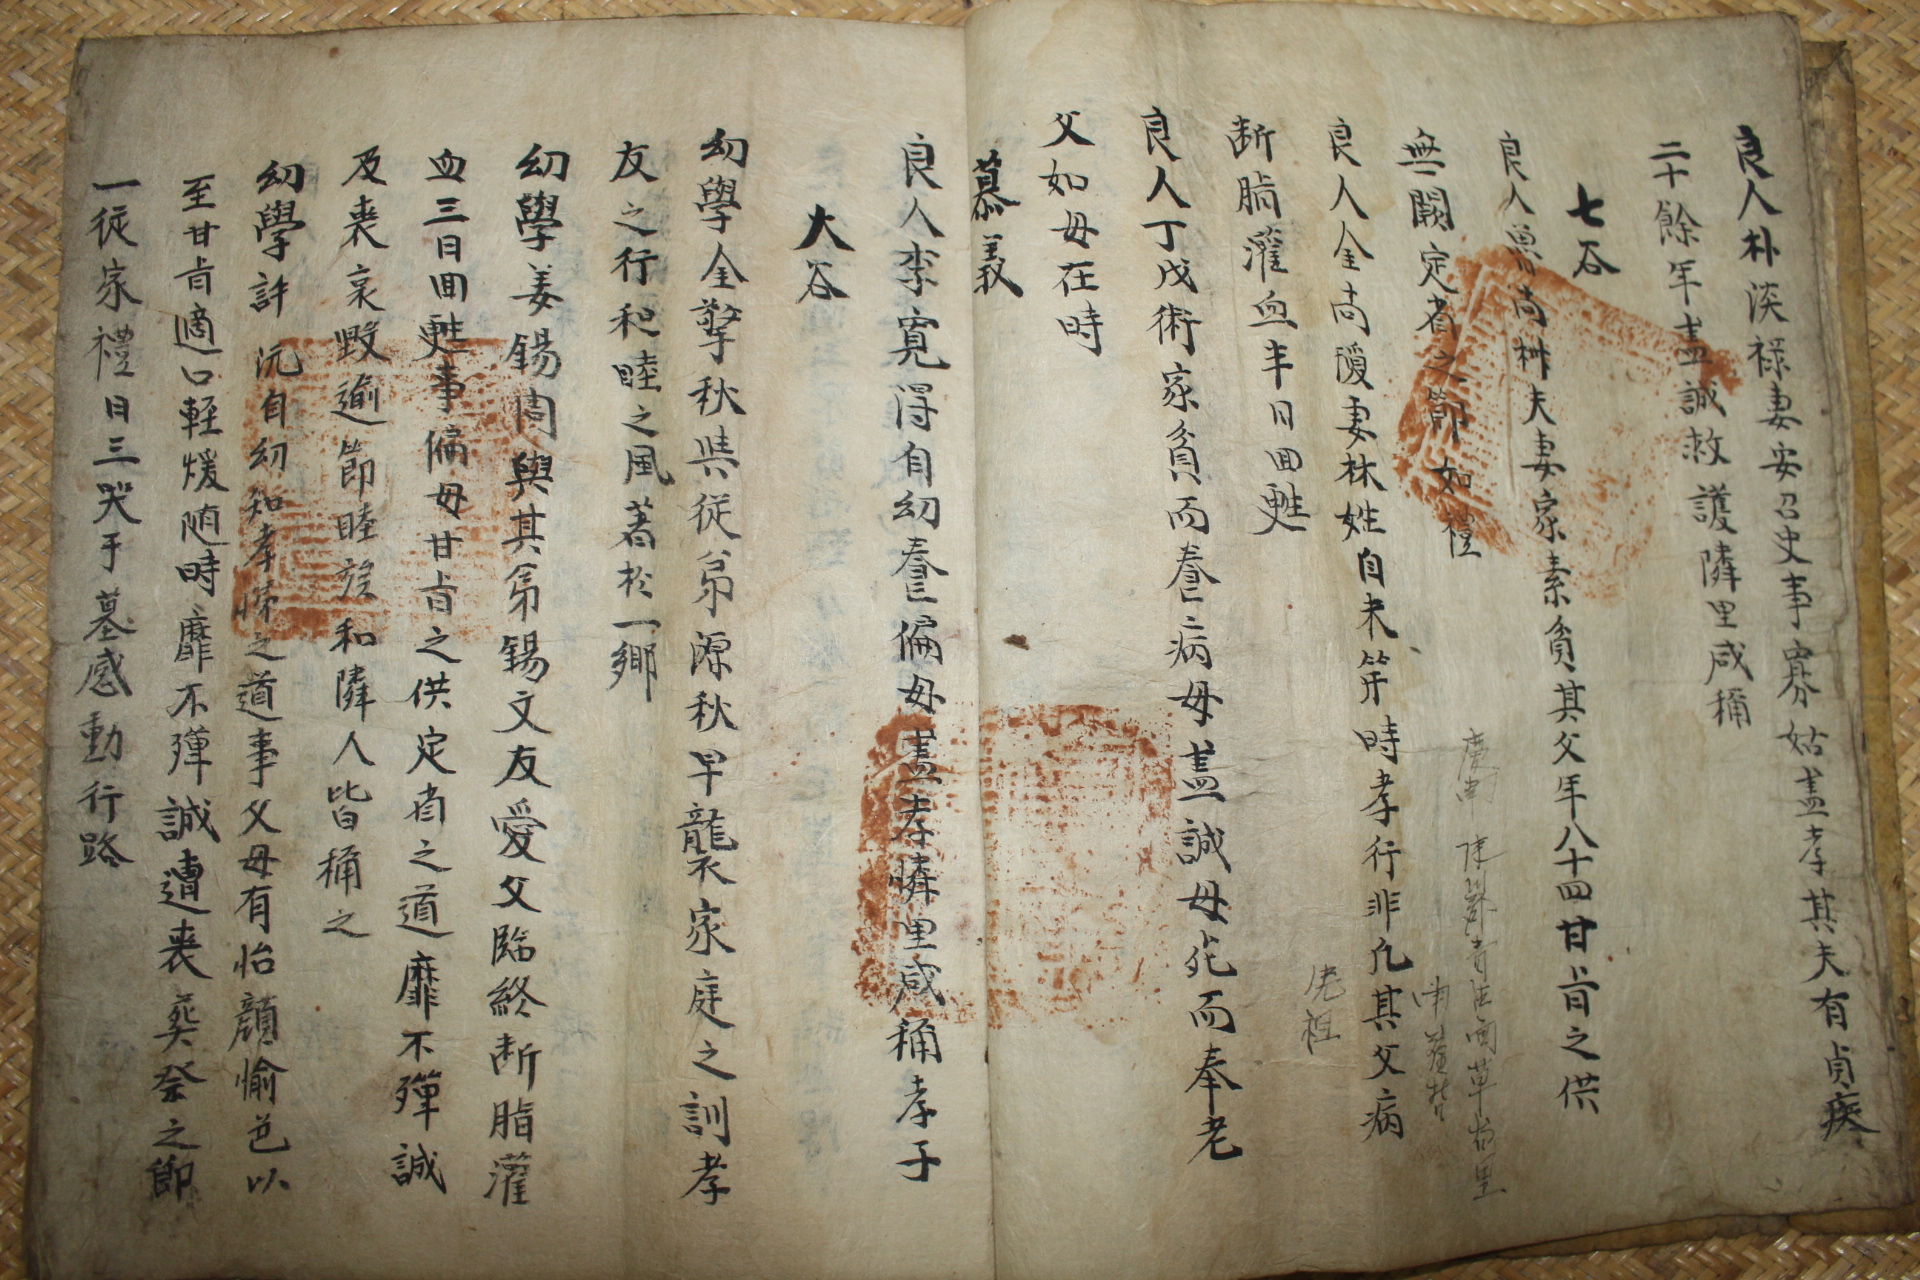 良人朴淡祿妻安召史事寡姑盖孝其夫有貞疾
二十餘年盖誠救護隣里咸稱
七谷
良人曽尚材夫妻家素貧其父年八十四甘旨之供
無闕定省之節如禮
良人金尚瓊妻林姓自未笄時孝行非凡其父病
断脂灌血半日回甦
良人丁戊術家貧而養病母盖誠母死而奉老
父如母在時
慕義
良人李寬得自幼養偏母盖孝憐里咸稱孝子
大谷
幼學金擎秋與從弟源秋早襲家庭之訓孝
友之行和睦之風著於一鄉
幼學姜錫周與其弟錫文友愛父臨終断脂灌
血三日回甦事偏母甘旨之供定省之道靡不殫誠
及喪哀毀逾節睦族和隣人皆稱之
幼學許沅自幼知孝悌之道事父母有怡顔愉色以
至甘旨適口輕煖随時靡不殫誠遭喪葬祭之節
一從家禮日三哭于墓感動行路